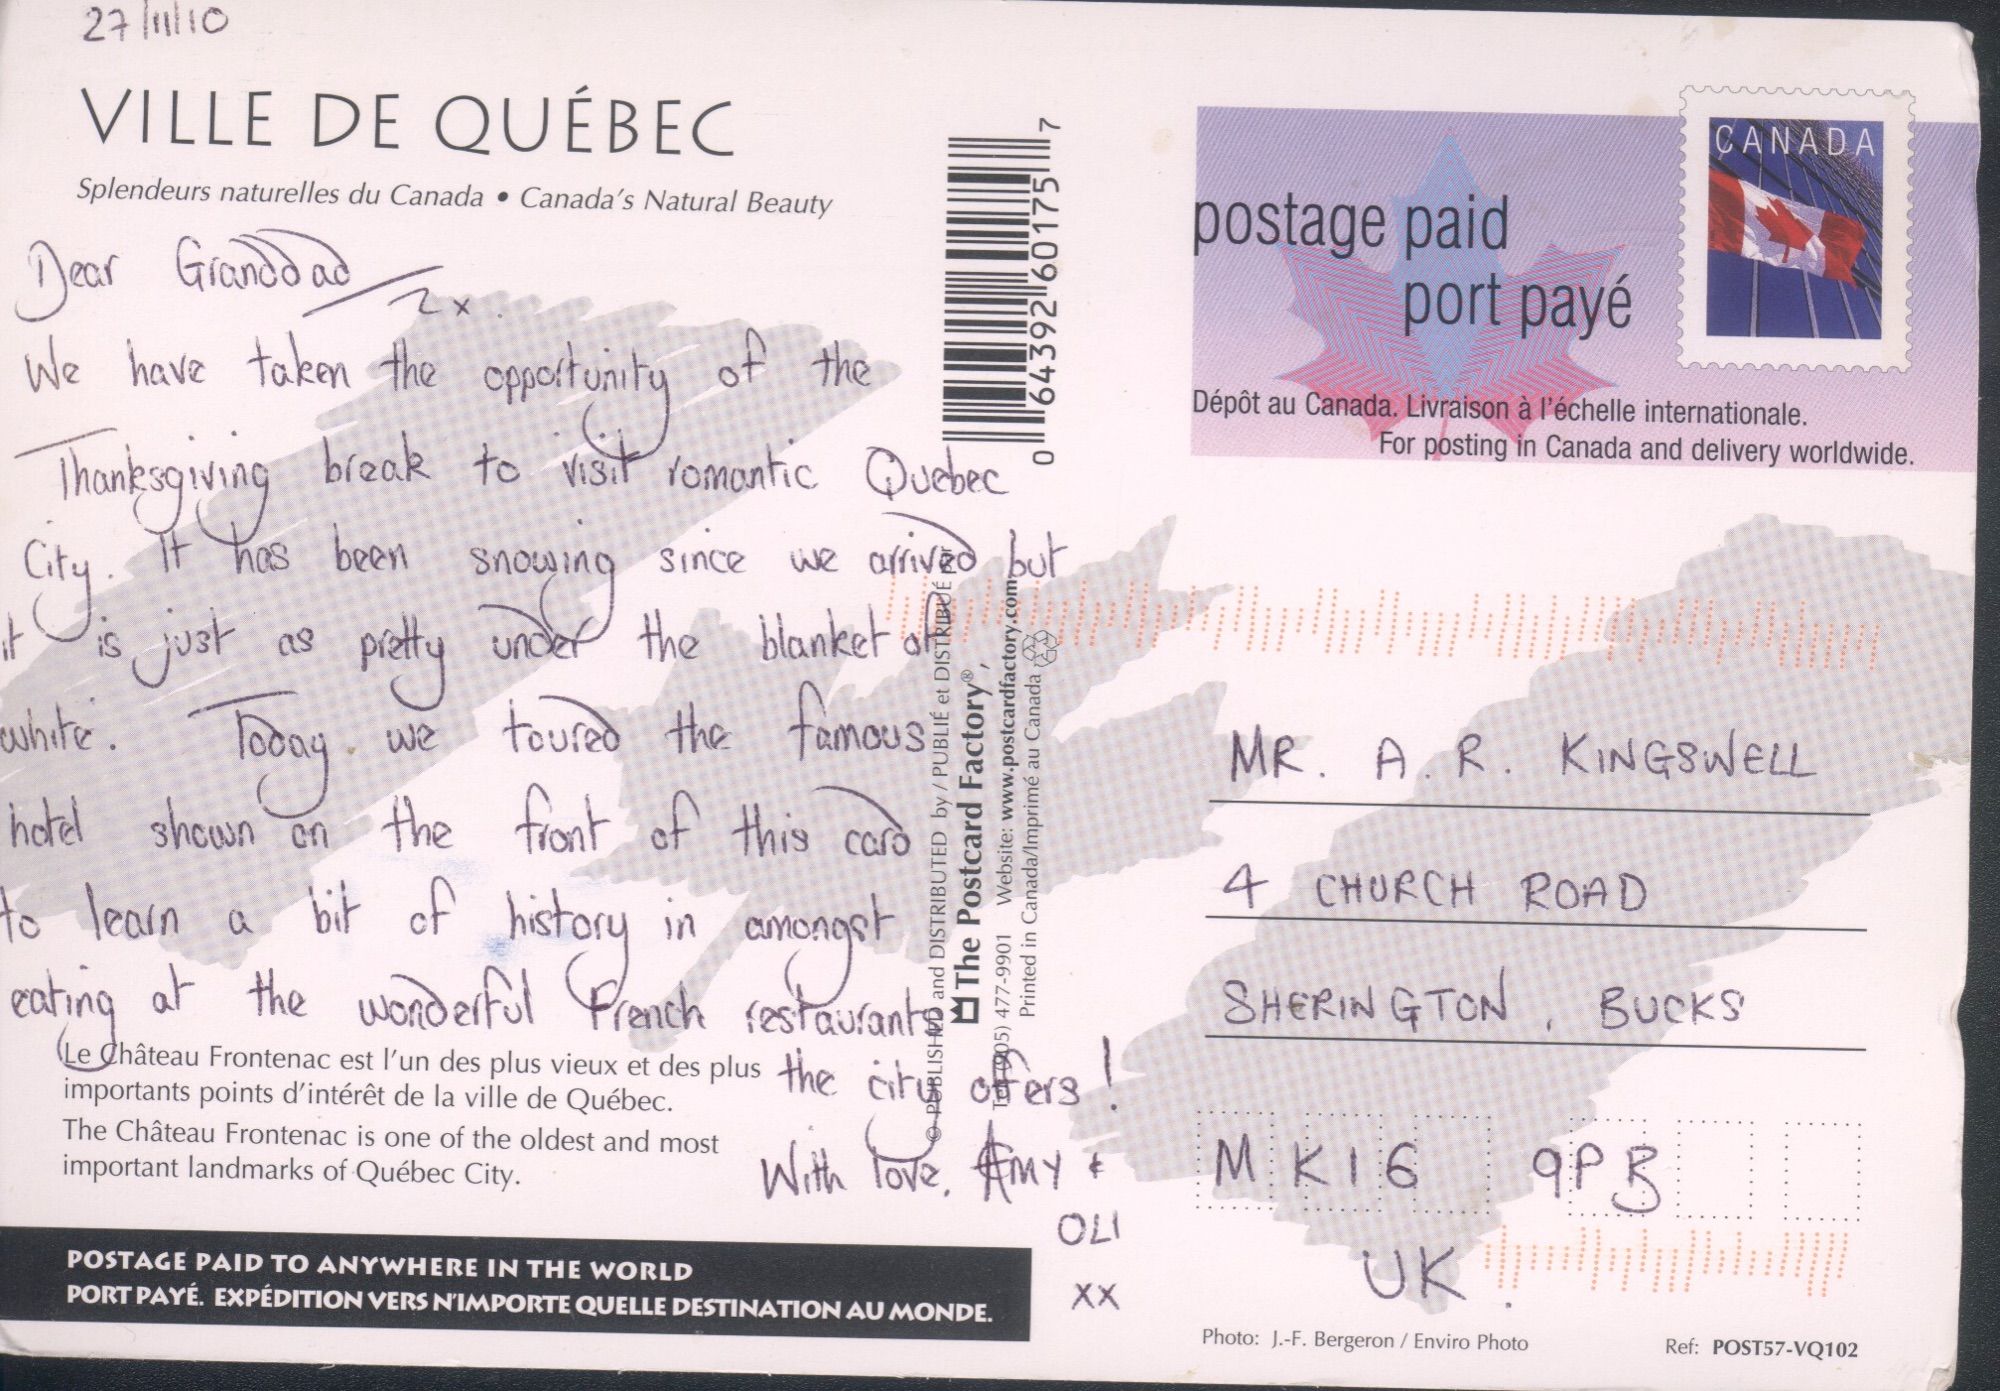 27/11/10
VILLE DE QUÉBEC
Splendeurs naturelles du Canada • Canada's Natural Beauty
Dear Granddad
x
We have taken the opportunity of the
Thanksgiving break to visit romantic Quebec
City. It has been snowing since we arrived but
it is just as pretty under the blanket of
white. Today we toured the famous
hotel shown on the front of this card
to learn a bit of history in amongst
eating at the wonderful French restaurants
the city offers!
With love, Amy &
OLI
xx
Le Château Frontenac est l'un des plus vieux et des plus
importants points d'intérêt de la ville de Québec.
The Château Frontenac is one of the oldest and most
important landmarks of Québec City.
POSTAGE PAID TO ANYWHERE IN THE WORLD
PORT PAYÉ. EXPÉDITION VERS N'IMPORTE QUELLE DESTINATION AU MONDE.
0 64392 60175 7
© PUBLISHED and DISTRIBUTED by / PUBLIÉ et DISTRIBUÉ par
The Postcard Factory®,
Tel: (905) 477-9901 Website: www.postcardfactory.com
Printed in Canada/Imprimé au Canada
postage paid
port payé
CANADA
Dépôt au Canada. Livraison à l'échelle internationale.
For posting in Canada and delivery worldwide.
MR. A. R. KINGSWELL
4 CHURCH ROAD
SHERINGTON, BUCKS
MK16 9PB
UK.
Photo: J.-F. Bergeron / Enviro Photo
Ref: POST57-VQ102